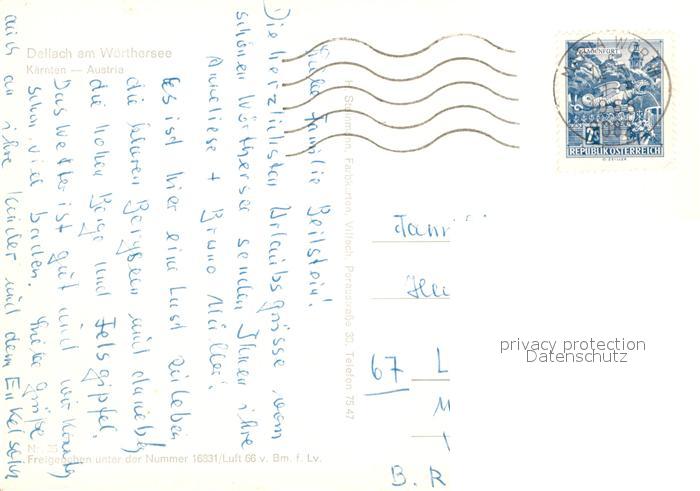 Dellach am Wörthersee
Kärnten — Austria
Familie Beilstein!
Die herzlichsten Urlaubsgrüsse vom
schönen Wörthersee senden Ihnen ihre
Anneliese + Bruno Müller!
Es ist hier eine Lust zu leben
die klaren Bergseen und daneben
die hohen Berge und Felsgipfel.
Das Wetter ist gut und wir können
schon viel baden. Viele Grüße
auch an ihre Kinder und dem Enkelsohn
Freigegeben unter der Nummer 16331/Luft 66 v. Bm. f. Lv.
Steinmann, Farbkarten, Villach, Peraustraße 30, Telefon 75 47
KLAGENFURT
2S
REPUBLIK ÖSTERREICH
67 L
M
B. R
privacy protection
Datenschutz